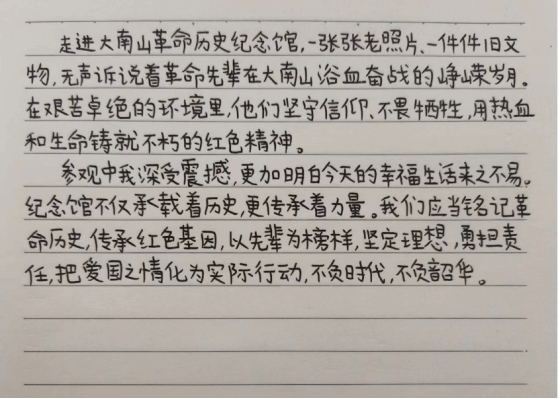 走进大南山革命历史纪念馆,一张张老照片、一件件旧文
物,无声诉说着革命先辈在大南山浴血奋战的峥嵘岁月。
在艰苦卓绝的环境里,他们坚守信仰、不畏牺牲,用热血
和生命铸就不朽的红色精神。
参观中我深受震撼,更加明白今天的幸福生活来之不易。
纪念馆不仅承载着历史,更传承着力量。我们应当铭记革
命历史,传承红色基因,以先辈为榜样,坚定理想,勇担责
任,把爱国之情化为实际行动,不负时代,不负韶华。